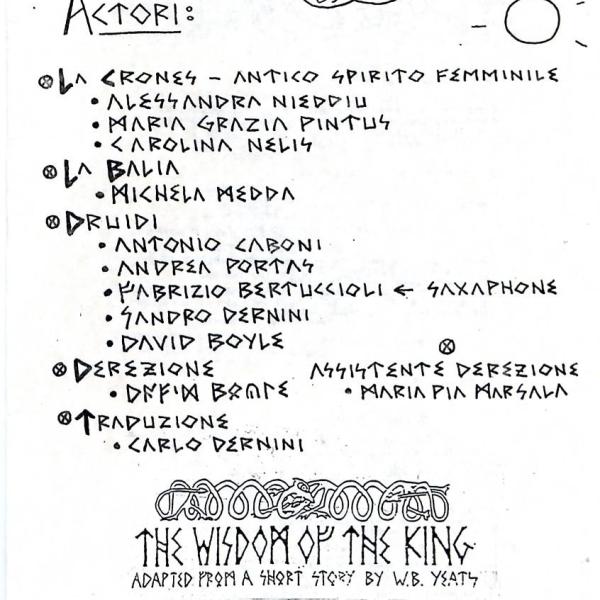 ACTORI:
LA CRONES – ANTICO SPIRITO FEMMINILE
• ALESSANDRA NIEDDIU
• MARIA GRAZIA PINTUS
• CAROLINA NELIS
LA BALIA
• MICHELA MEDDA
DRUIDI
• ANTONIO CABONI
• ANDREA PORTAS
• FABRIZIO BERTUCCIOLI ← SAXAPHONE
• SANDRO DERNINI
• DAVID BOYLE
DEREZIONE
• DAFID BOULE
ASSISTENTE DEREZIONE
• MARIA PIA MARSALA
TRADUZIONE
• CARLO DERNINI
THE WISDOM OF THE KING
ADAPTED FROM A SHORT STORY BY W.B. YEATS